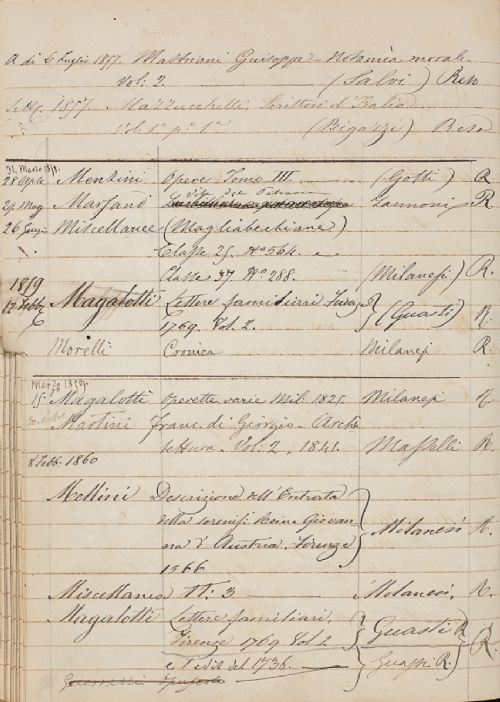 A di 6 Luglio 1857. Mastriani Guiseppe – Notomia morale.
Vol: 2. (Salvi) Reso
1857. Mazzucchelli, Scrittori d'Italia
Vol. 1° p.e 1.a (Bigazzi) Reso
31. Marzo 1858.
28 Aple Menzini Opere Tomo III (Gotti) R
29 Mag Marsand Iannoni R
26 Giug Miscellanee (Magliabechiane)
Classe 25. N° 564. e
Classe 37. N° 288. (Milanesi) R.
1859
12 Febb. Magalotti Lettere familiari Firenze (Guasti) R.
1769. Vol. 2.
Morelli Cronica Milanesi R.
Marzo 1859.
15 Magalotti Operette varie Mil. 1825. Milanesi R.
Martini Franc. di Giorgio – Archi
tettura – Vol: 2, 1841. Masselli R.
8 Febb. 1860
Mellini Descrizione dell'Entrata
della sereniss. Reina Giovan
na d'Austria. Firenze Milanesi R.
1566
Miscellanea TT. 3 Milanesi, R.
Magalotti Lettere familiari,
Firenze 1769 Vol 2 Guasti R
e l'ediz. del 1736. Guasti R.) R.
Opuscoli